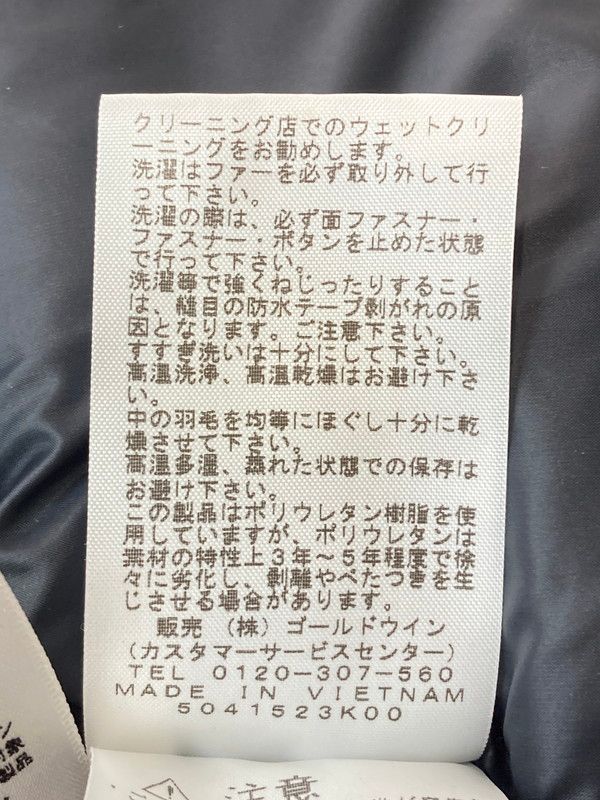 クリーニング店でのウェットクリ
ーニングをお勧めします。
洗濯はファーを必ず取り外して行
って下さい。
洗濯の際は、必ず面ファスナー・
ファスナー・ボタンを止めた状態
で行って下さい。
洗濯等で強くねじったりすること
は、縫目の防水テープ剥がれの原
因となります。ご注意下さい。
すすぎ洗いは十分にして下さい。
高温洗浄、高温乾燥はお避け下さ
い。
中の羽毛を均等にほぐし十分に乾
燥させて下さい。
高温多湿、蒸れた状態での保存は
お避け下さい。
この製品はポリウレタン樹脂を使
用していますが、ポリウレタンは
素材の特性上3年〜5年程度で徐
々に劣化し、剥離やべたつきを生
じさせる場合があります。
販売 (株) ゴールドウイン
(カスタマーサービスセンター)
TEL 0120-307-560
MADE IN VIETNAM
5041523K00
注意